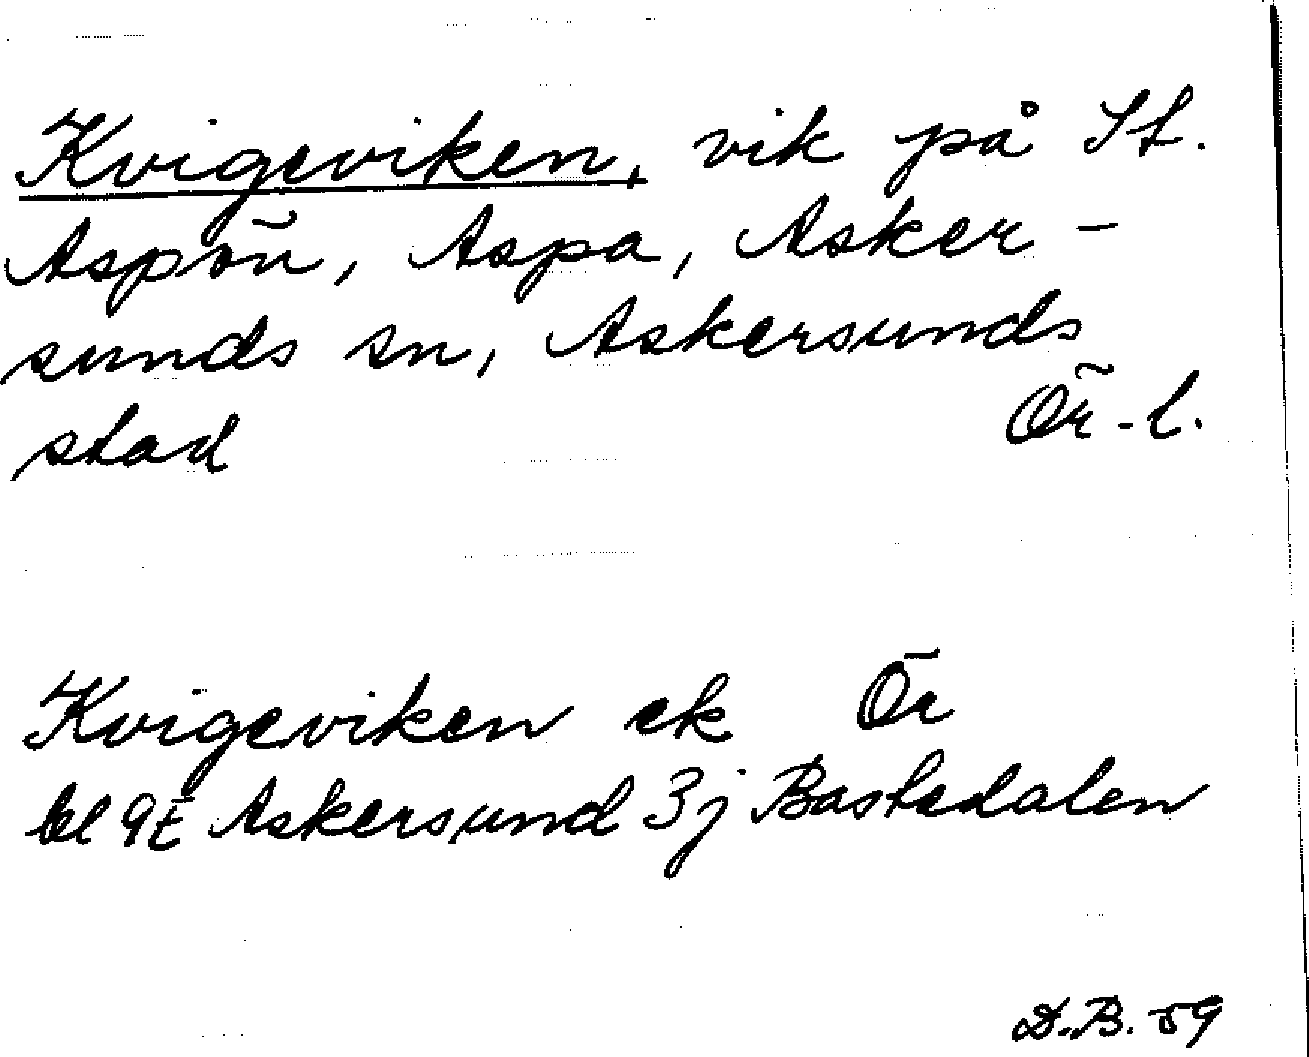 Kvigeviken, vik på St.
Aspön, Aspa, Asker-
sunds sn, Askersunds
stad Ör-l.
Kvigeviken ek Ör
bl 9E Askersund 3j Bastedalen
D.B. 59